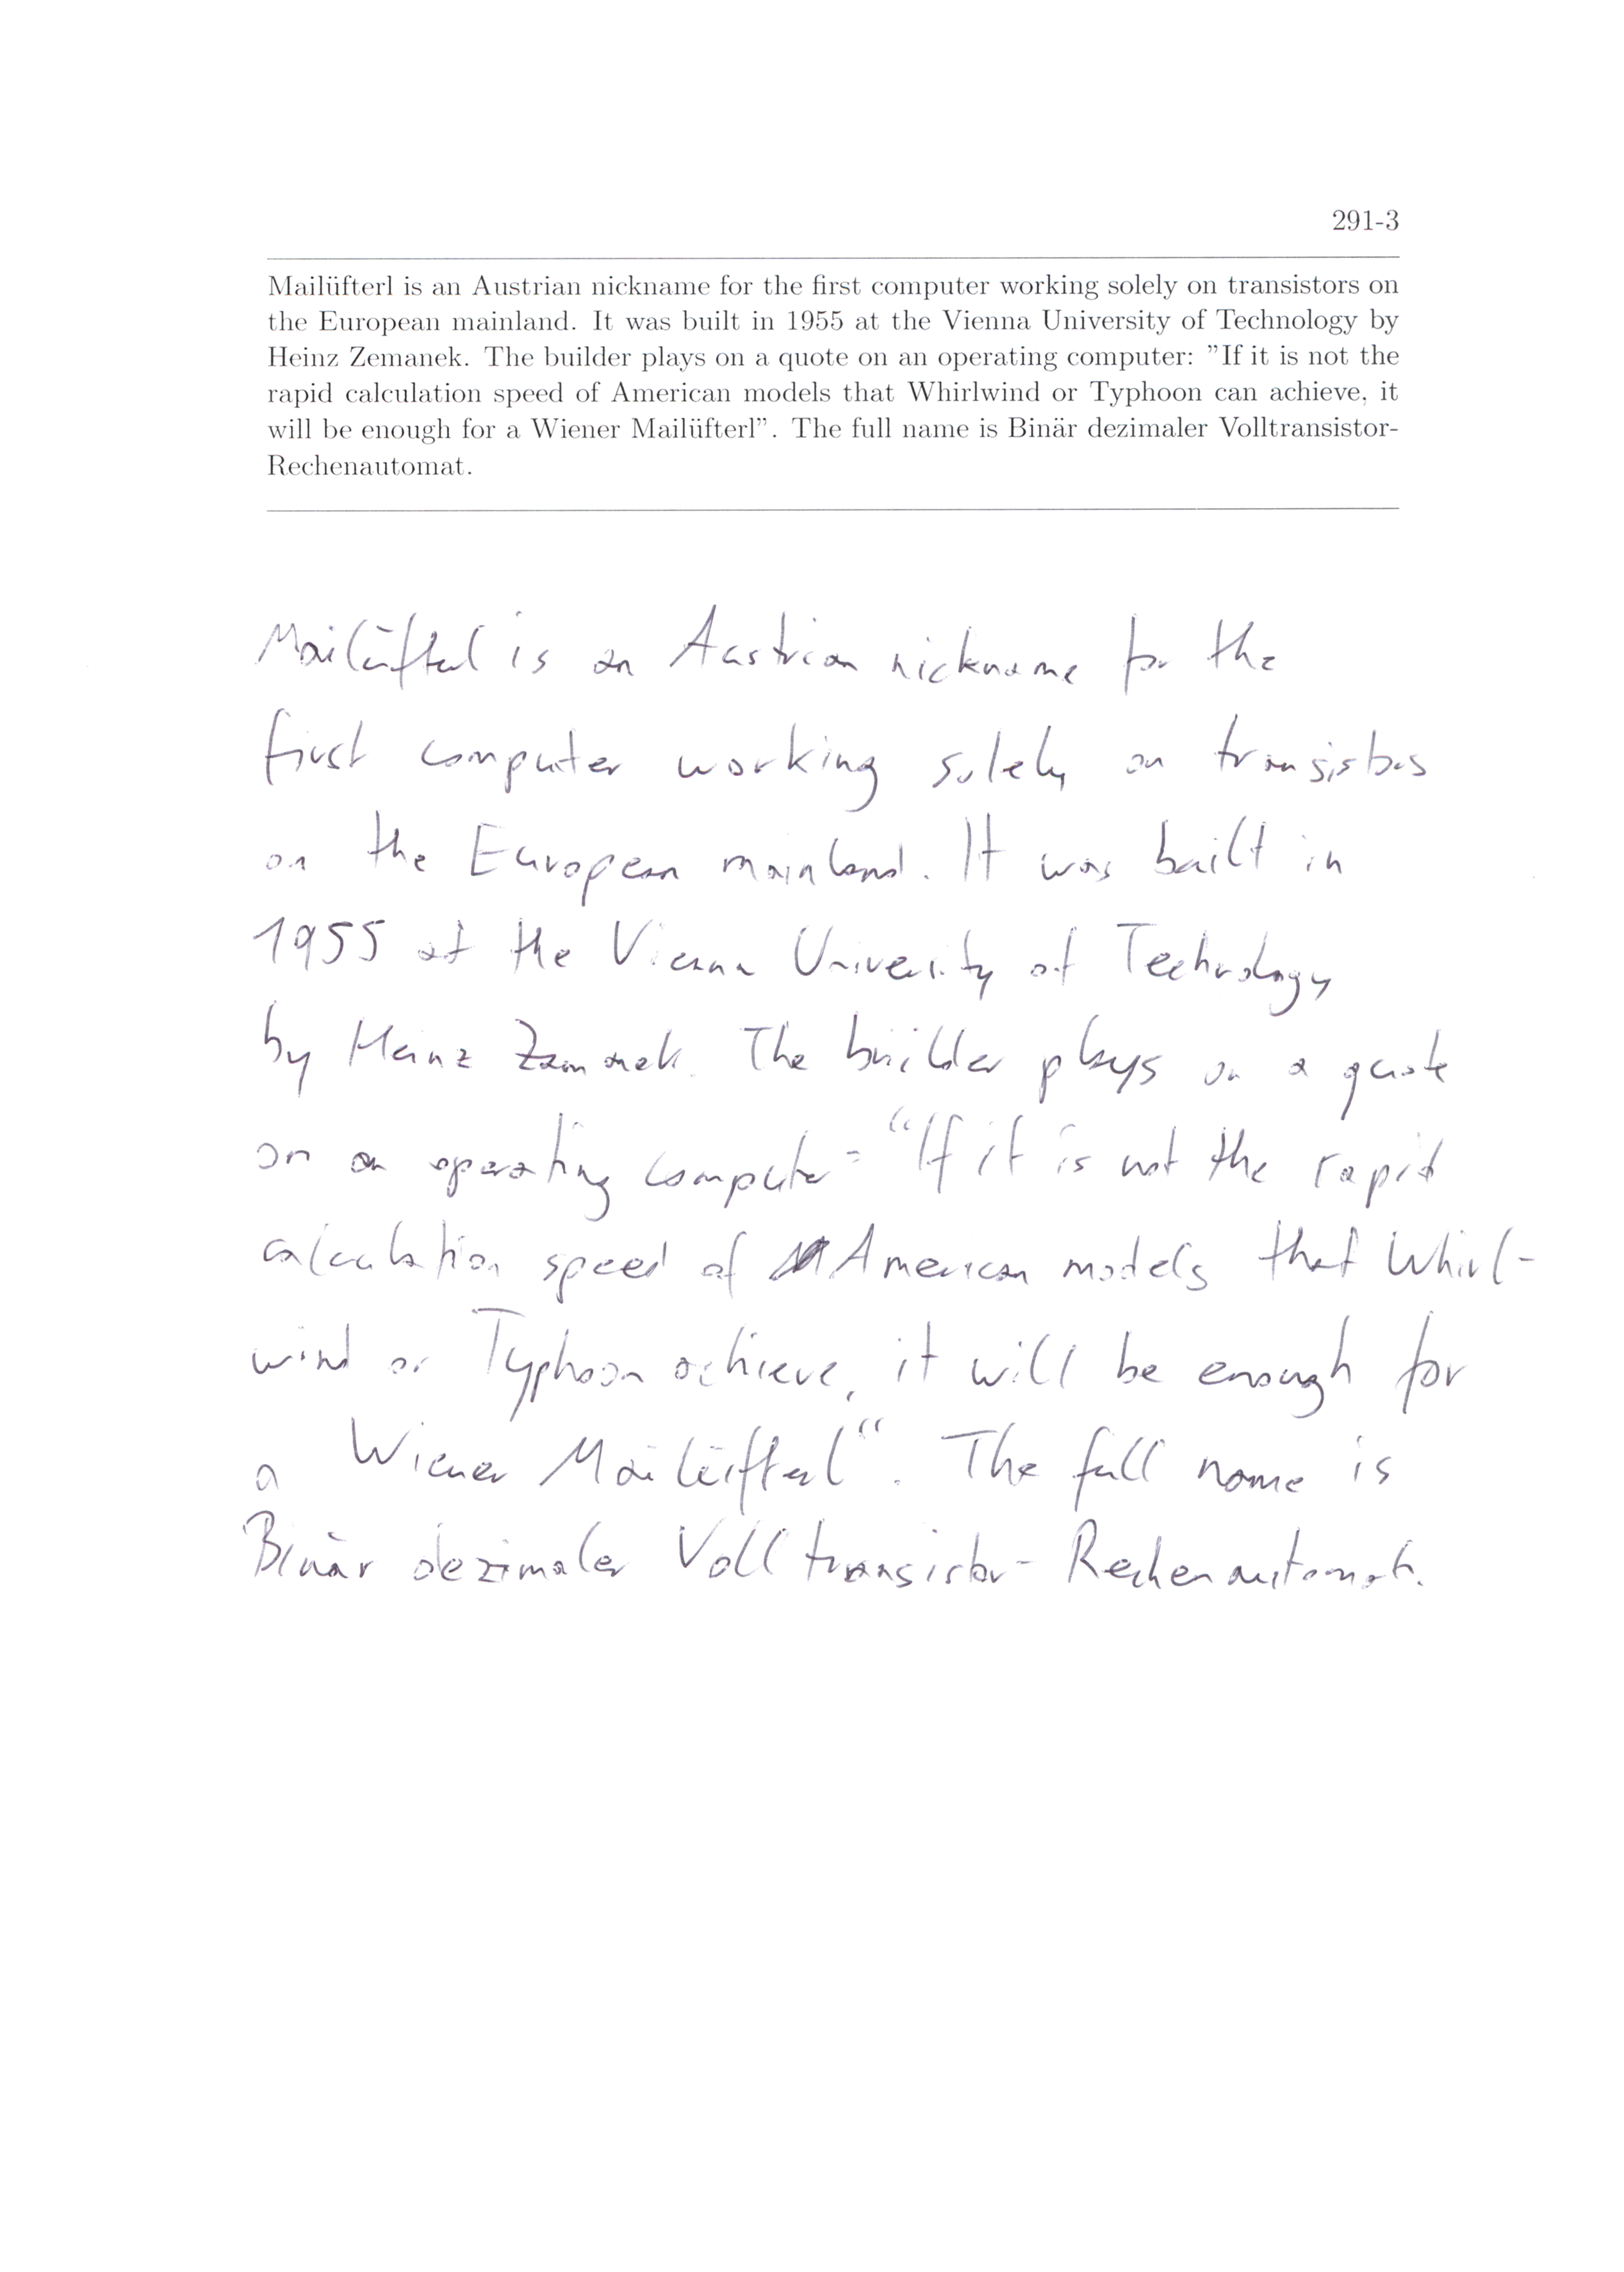 291-3
Mailüfterl is an Austrian nickname for the first computer working solely on transistors on
the European mainland. It was built in 1955 at the Vienna University of Technology by
Heinz Zemanek. The builder plays on a quote on an operating computer: "If it is not the
rapid calculation speed of American models that Whirlwind or Typhoon can achieve, it
will be enough for a Wiener Mailüfterl". The full name is Binär dezimaler Volltransistor-
Rechenautomat.
Mailüfterl is an Austrian nickname for the
first computer working solely on transistors
on the European mainland. It was built in
1955 at the Vienna University of Technology
by Heinz Zemanek. The builder plays on a quote
on an operating computer: "If it is not the rapid
calculation speed of American models that Whirl-
wind or Typhoon achieve, it will be enough for
a Wiener Mailüfterl". The full name is
Binär dezimaler Volltransistor-Rechenautomat.